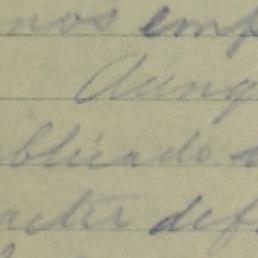 nos emp
Aunq
blicado
acter def